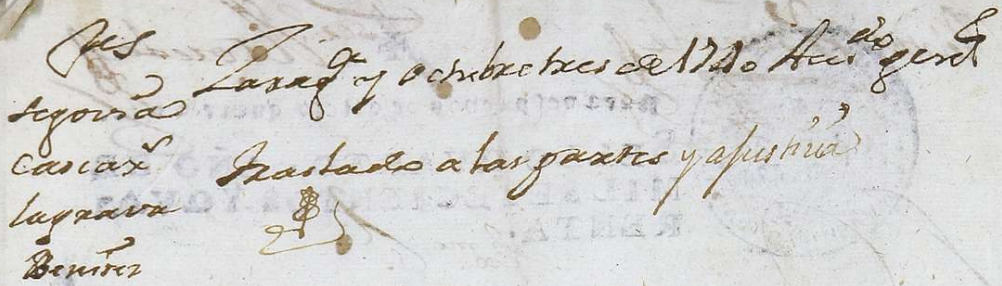 SS.es
Segovia
Cascax.l
Lagrava
Benitez
Zarag.a y octubre tres de 1740 Acu.do gen.l
Traslado a las partes y a Justicia